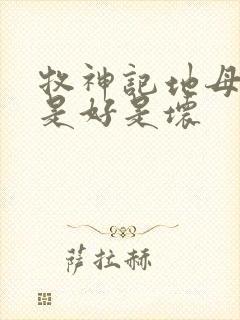 牧神記地母
是好是壞
萨拉赫